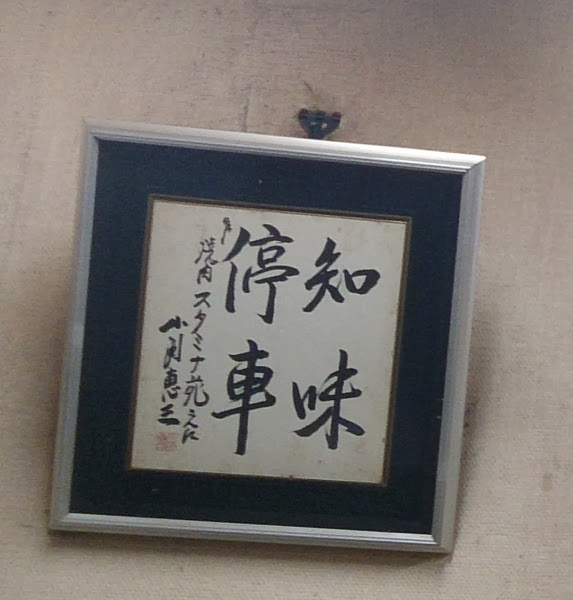 知味
停車
焼肉スタミナ苑さんに
小渕恵三